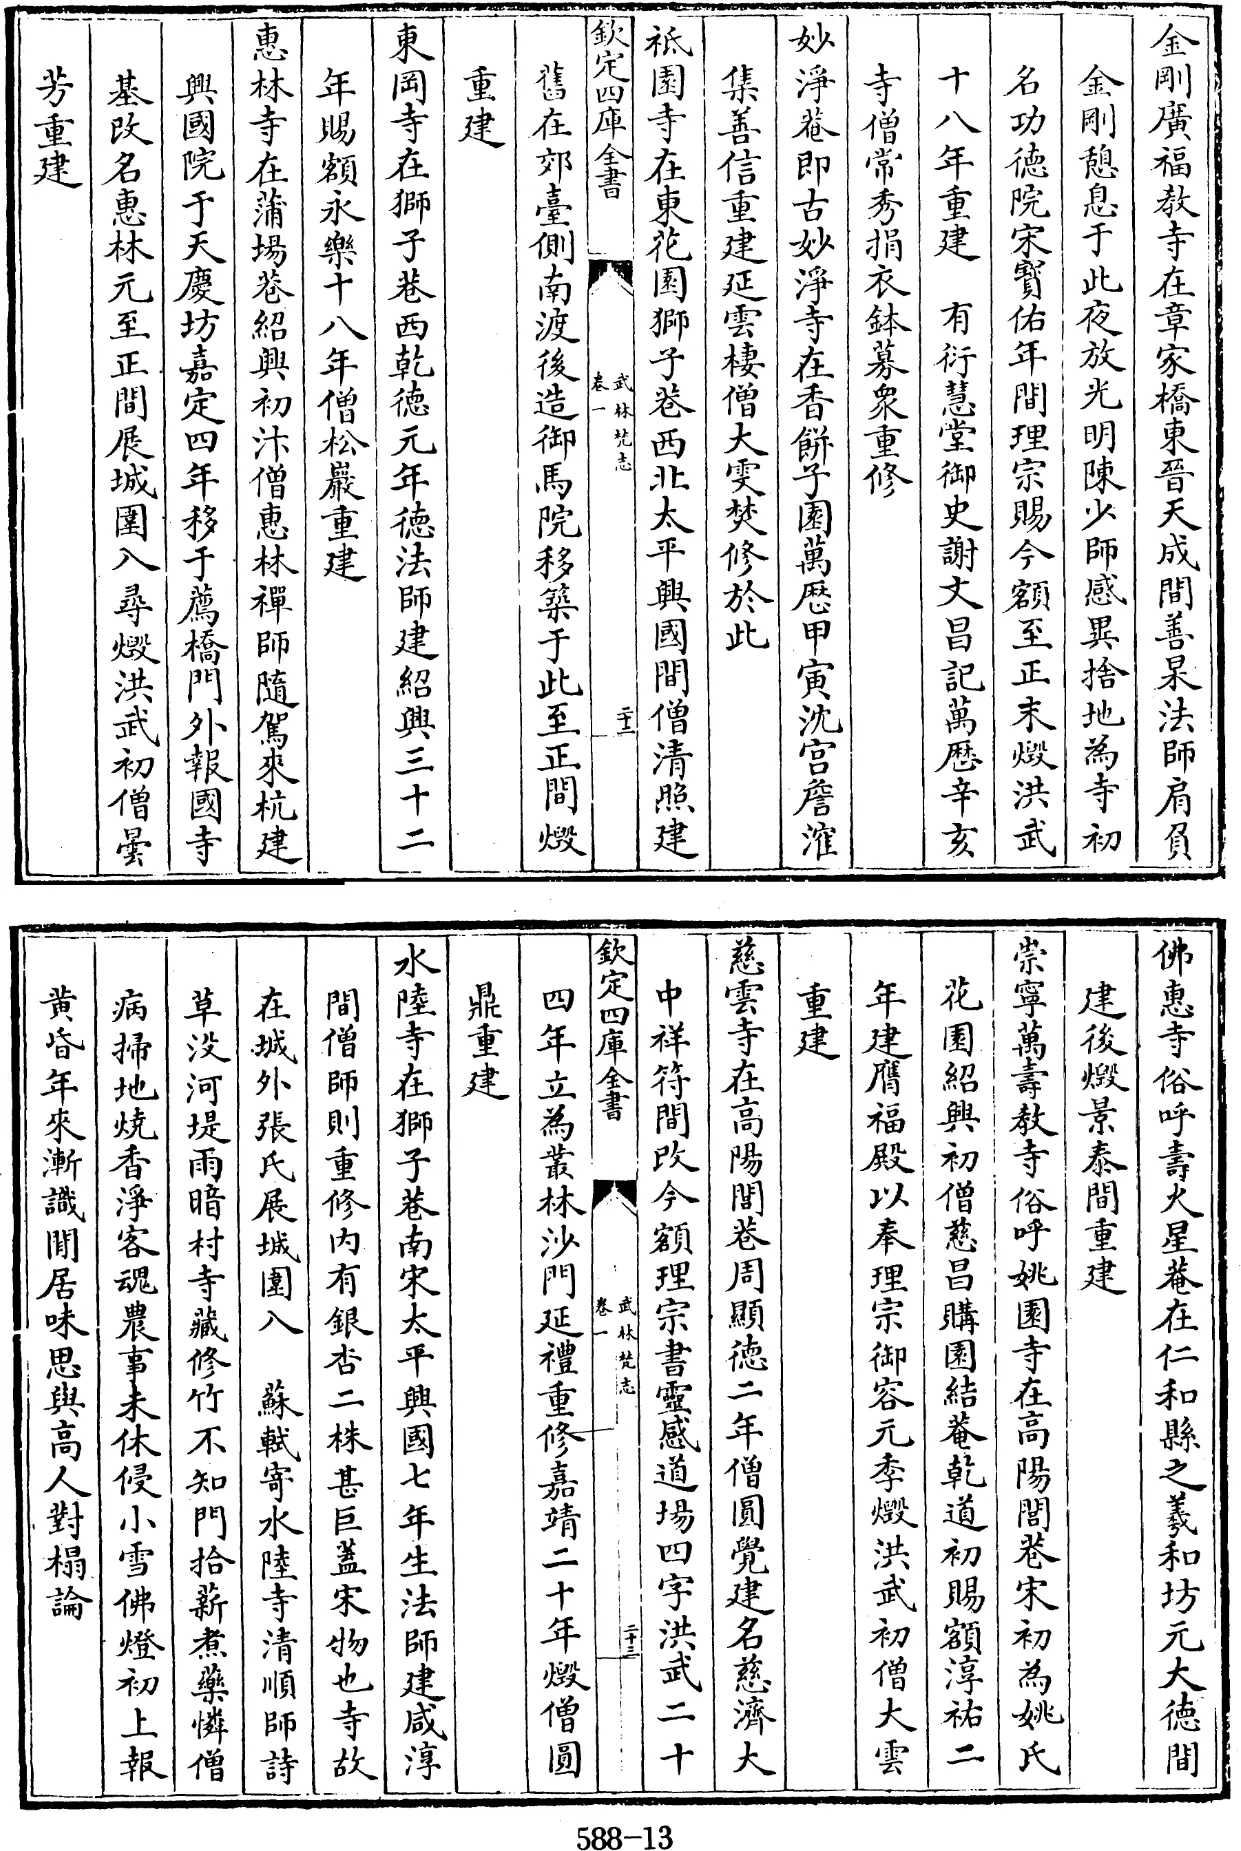 金剛廣福教寺在章家橋東晉天成間善杲法師肩負
金剛憩息于此夜放光明陳少師感異捨地為寺初
名功德院宋寳佑年間理宗賜今額至正末燬洪武
十八年重建　有衍慧堂御史謝文昌記萬厯辛亥
寺僧常秀捐衣鉢募衆重修
妙淨菴即古妙淨寺在香餅子園萬厯甲寅沈宫詹㴶
集善信重建延雲棲僧大雯焚修於此
祇園寺在東花園獅子巷西北太平興國間僧清照建
欽定四庫全書
武林梵志
卷一
二十二
舊在郊臺側南渡後造御馬院移築于此至正間燬
重建
東岡寺在獅子巷西乾德元年德法師建紹興三十二
年賜額永樂十八年僧松巖重建
惠林寺在蒲場巷紹興初汴僧惠林禪師隨駕來杭建
興國院于天慶坊嘉定四年移于薦橋門外報國寺
基改名惠林元至正間展城圍入尋燬洪武初僧曇
芳重建
佛惠寺俗呼壽火星菴在仁和縣之義和坊元大德間
建後燬景泰間重建
崇寧萬壽教寺俗呼姚園寺在高陽閭巷宋初為姚氏
花園紹興初僧慈昌購園結菴乾道初賜額淳祐二
年建膺福殿以奉理宗御容元季燬洪武初僧大雲
重建
慈雲寺在高陽閭巷周顯德二年僧圓覺建名慈濟大
中祥符間改今額理宗書靈感道場四字洪武二十
欽定四庫全書
武林梵志
卷一
二十三
四年立為叢林沙門延禮重修嘉靖二十年燬僧圓
鼎重建
水陸寺在獅子巷南宋太平興國七年生法師建咸淳
間僧師則重修内有銀杏二株甚巨蓋宋物也寺故
在城外張氏展城圍入　蘇軾寄水陸寺清順師詩
草没河堤雨暗村寺藏修竹不知門拾薪煮藥憐僧
病掃地燒香淨客魂農事未休侵小雪佛燈初上報
黄昏年來漸識閒居味思與高人對榻論
588-13